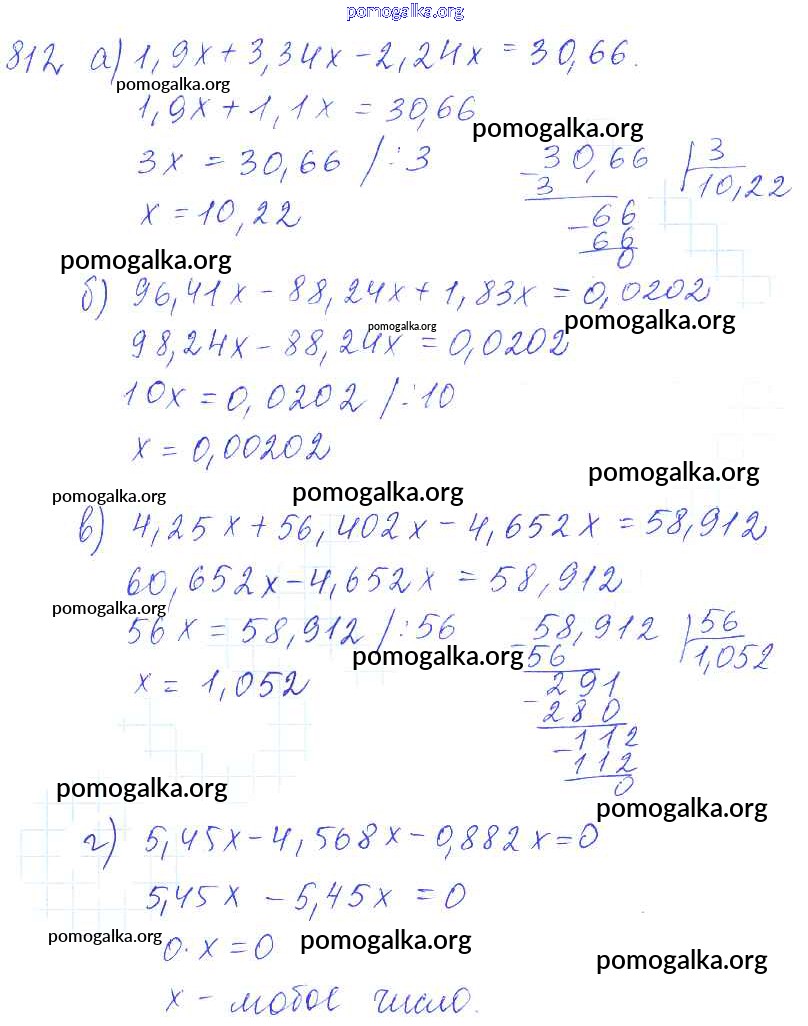 pomogalka.org
812 а) 1,9x + 3,34x - 2,24x = 30,66.
pomogalka.org
1,9x + 1,1x = 30,66
pomogalka.org
3x = 30,66 / : 3
x = 10,22
30,66 | 3
3 10,22
66
66
0
pomogalka.org
б) 96,41x - 88,24x + 1,83x = 0,0202
pomogalka.org
pomogalka.org
98,24x - 88,24x = 0,0202
10x = 0,0202 / : 10
x = 0,00202
pomogalka.org
pomogalka.org pomogalka.org
в) 4,25x + 56,402x - 4,652x = 58,912
60,652x - 4,652x = 58,912
pomogalka.org
56x = 58,912 / : 56
pomogalka.org
x = 1,052
58,912 | 56
56 1,052
291
280
112
112
0
pomogalka.org
pomogalka.org
г) 5,45x - 4,568x - 0,882x = 0
5,45x - 5,45x = 0
pomogalka.org pomogalka.org
0 · x = 0
pomogalka.org
x - любое число.